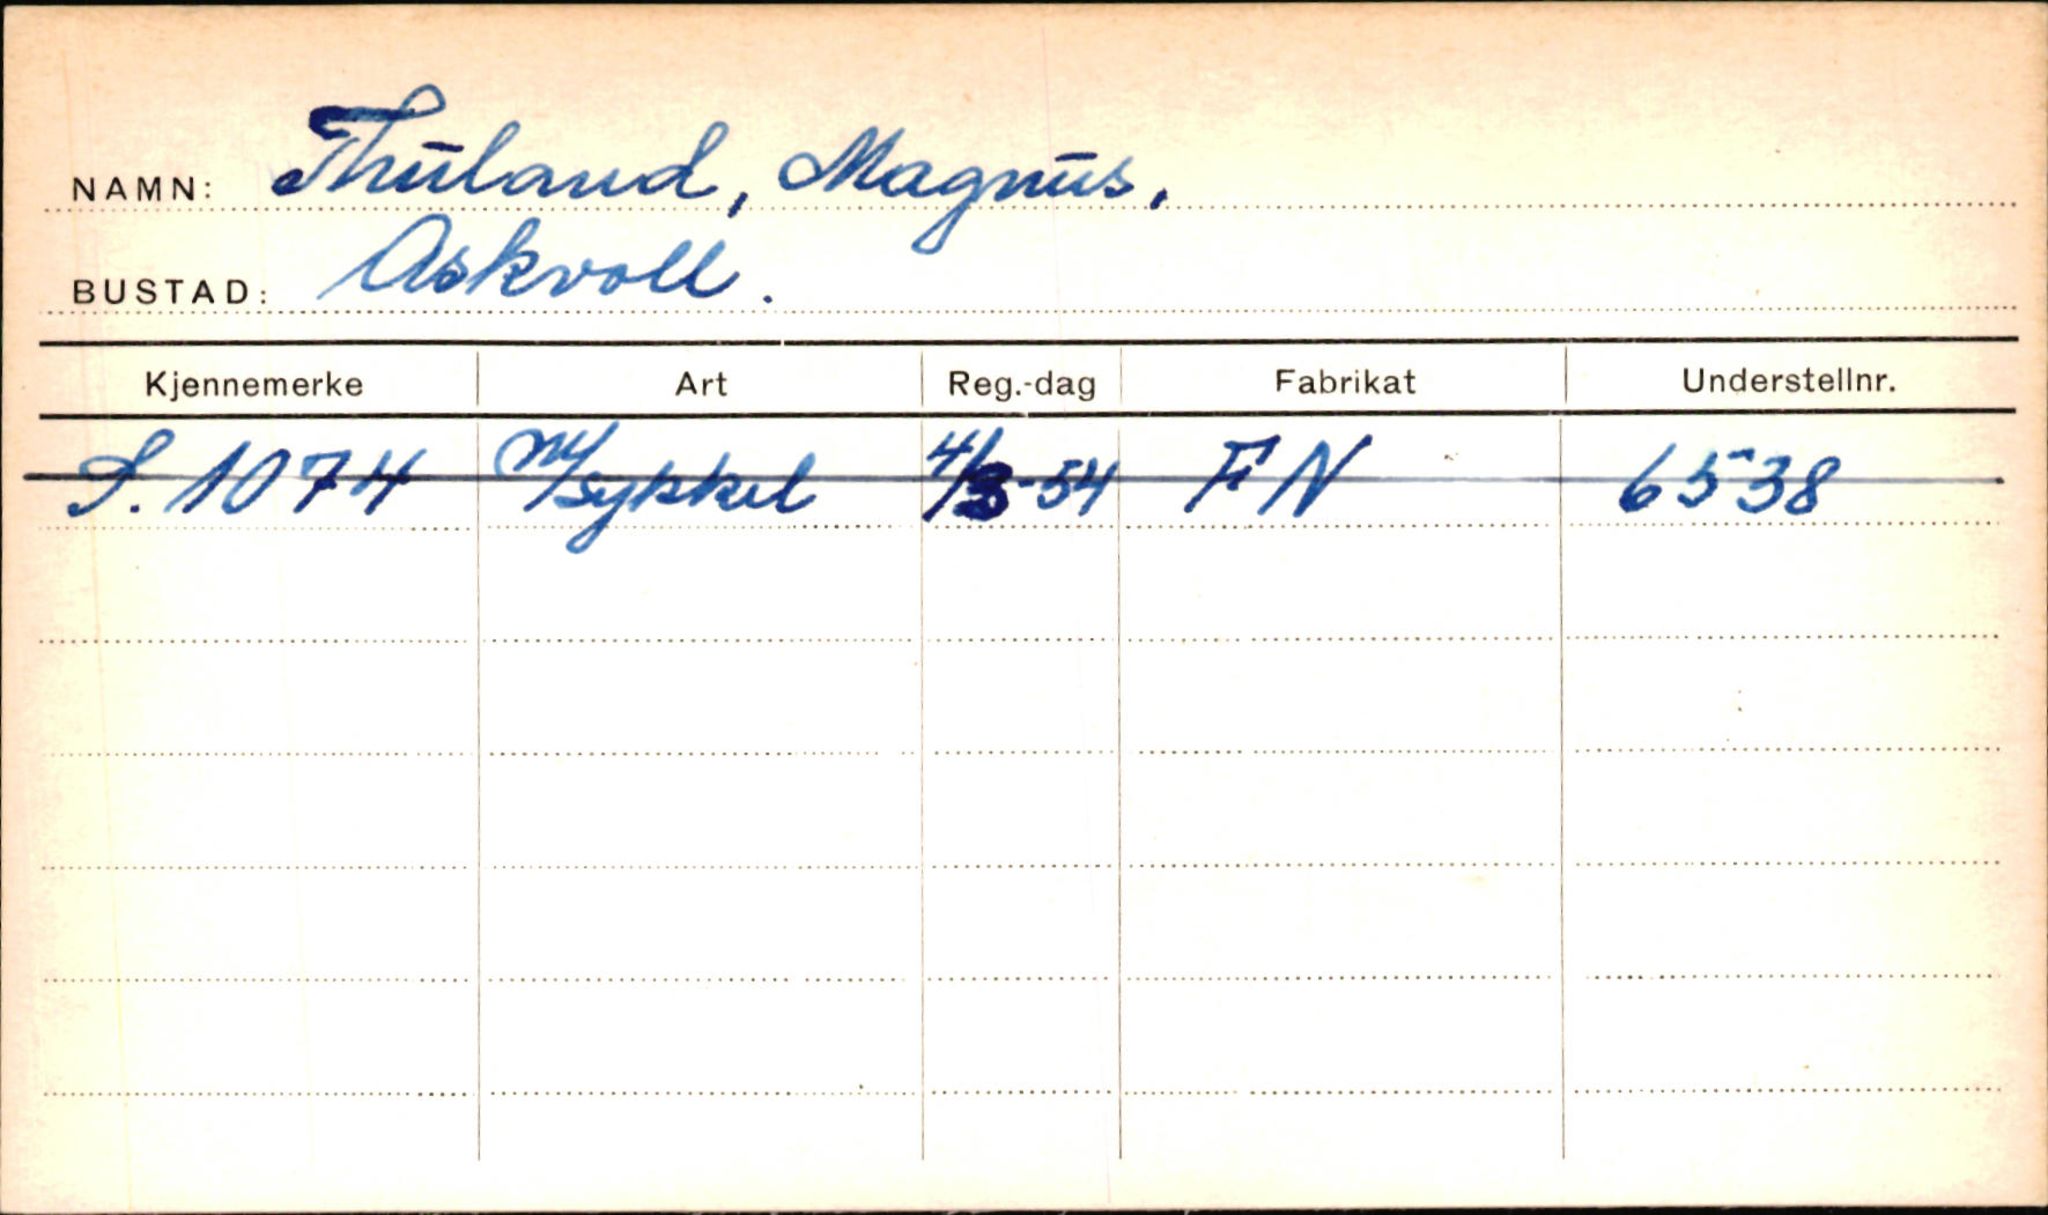 NAMN: Thuland, Magnus.
BUSTAD: Askvoll.
Kjennemerke Art Reg.-dag Fabrikat Understellnr.
S. 1074 M/sykkel 4/3-54 FN 6538